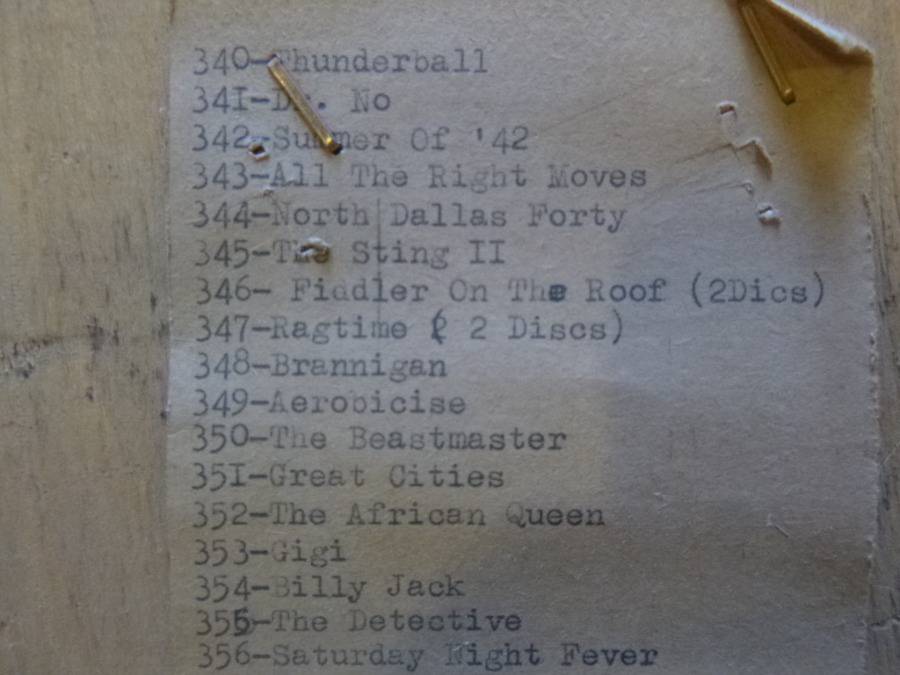 340-Thunderball
341-Dr. No
342-Summer Of '42
343-All The Right Moves
344-North Dallas Forty
345-The Sting II
346- Fiddler On The Roof (2Dics)
347-Ragtime ( 2 Discs)
348-Brannigan
349-Aerobicise
350-The Beastmaster
351-Great Cities
352-The African Queen
353-Gigi
354-Billy Jack
355-The Detective
356-Saturday Night Fever